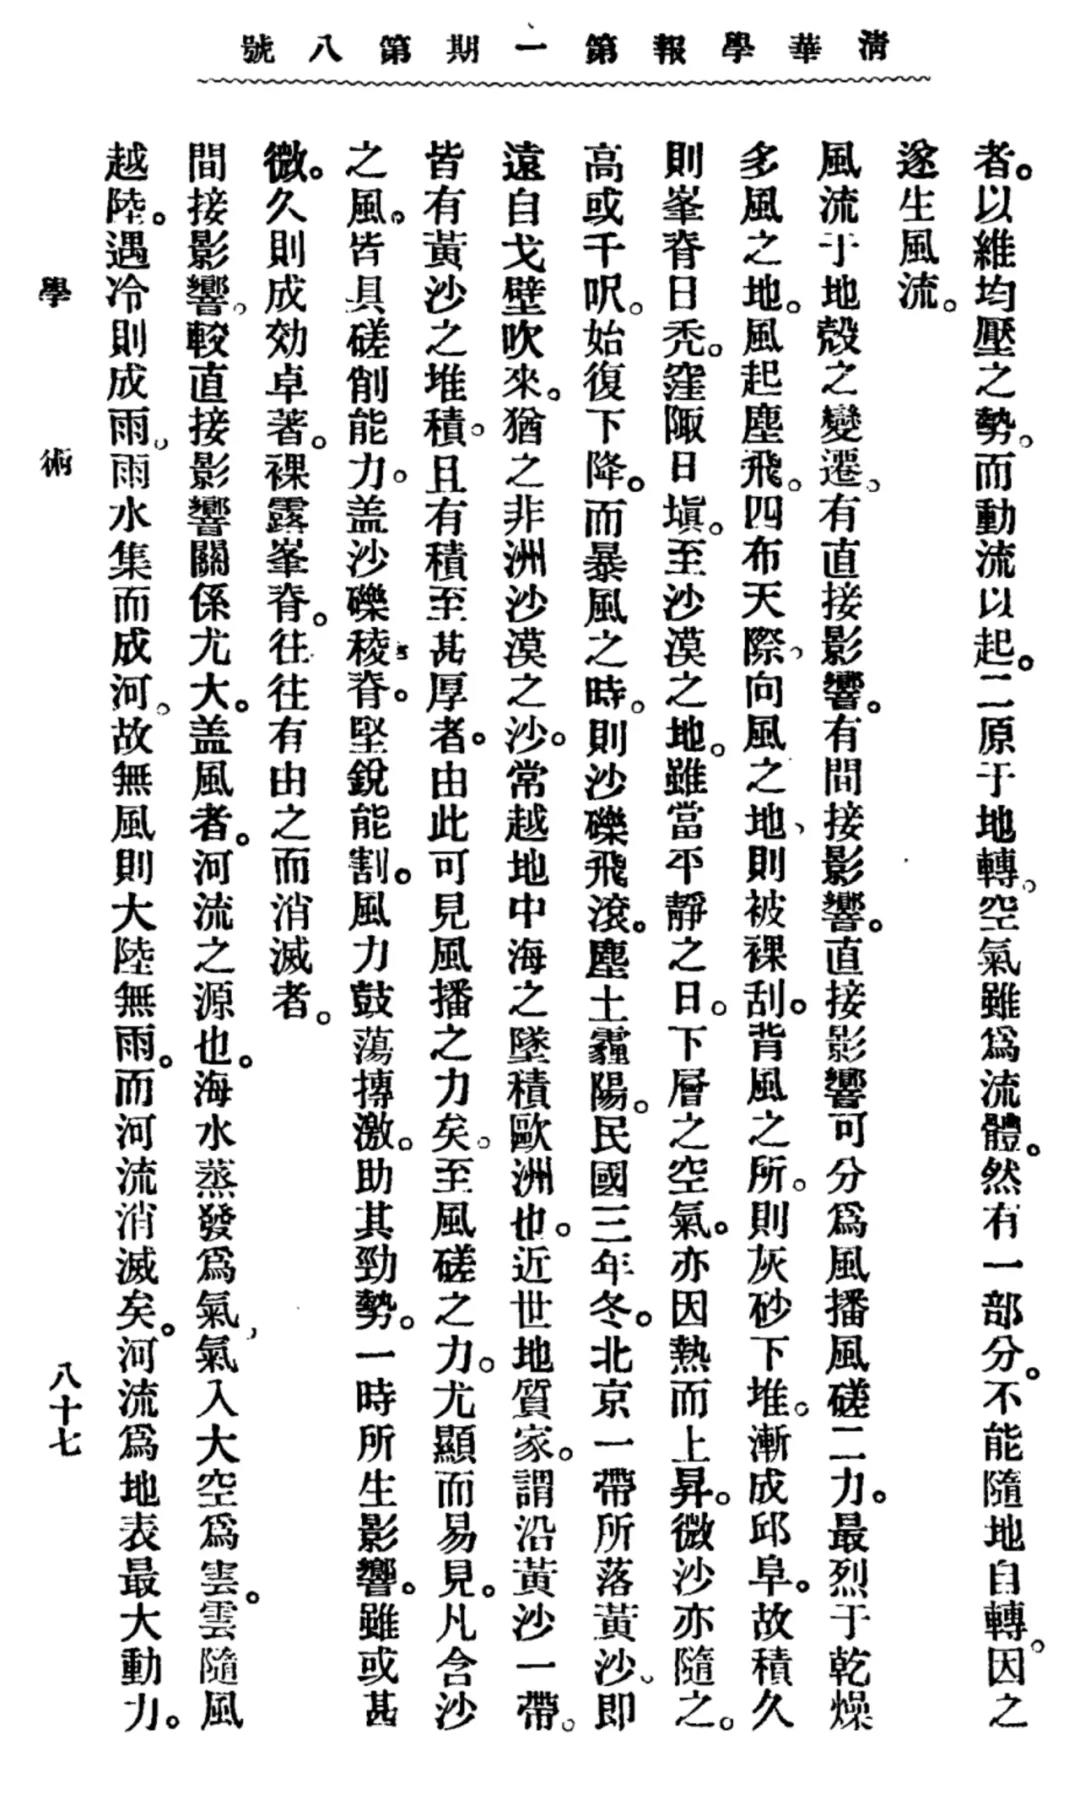 清華學報第一期第八號
者。以維均壓之勢。而動流以起。二原于地轉。空氣雖爲流體。然有一部分。不能隨地自轉。因之
遂生風流。
風流于地殼之變遷。有直接影響。有間接影響。直接影響可分爲風播風磋二力。最烈于乾燥
多風之地。風起塵飛。四布天際、向風之地、則被裸刮。背風之所。則灰砂下堆。漸成邱阜。故積久
則峯脊日禿。窪陬日塡。至沙漠之地。雖當平靜之日。下層之空氣。亦因熱而上昇。微沙亦隨之。
高或千呎。始復下降。而暴風之時。則沙礫飛滾。塵土霾陽。民國三年冬。北京一帶所落黃沙。即
遠自戈壁吹來。猶之非洲沙漠之沙。常越地中海之墜積歐洲也。近世地質家。謂沿黃沙一帶。
皆有黃沙之堆積。且有積至甚厚者。由此可見風播之力矣。至風磋之力。尤顯而易見。凡含沙
之風。皆具磋削能力。盖沙礫稜脊。堅銳能割。風力鼓蕩摶激。助其勁勢。一時所生影響。雖或甚
微。久則成効卓著。裸露峯脊。往往有由之而消滅者。
間接影響。較直接影響關係尤大。盖風者。河流之源也。海水蒸發爲氣，氣入大空爲雲。雲隨風
越陸。遇冷則成雨。雨水集而成河。故無風則大陸無雨。而河流消滅矣。河流爲地表最大動力。
學術
八十七